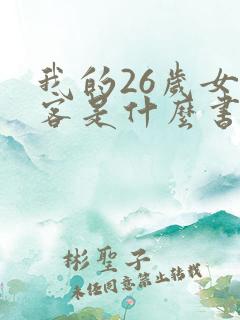 我的26歲女
客是什麼書
彬聖子
未任同意禁止转载